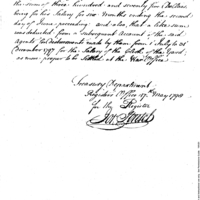 the sum of three hundred and seventy five Dollars
being for his Salary for six months ending the second
day of June preceding: and also that a like sum
was deducted from a subsequent Account of the said
agents for disbursements made by them from 1 July to 31
December 1797 for the Salary of the Clerk of the Yard,
as more proper to be settled at the War Office.
Treasury Department
Registers Office 17th May 1798
for the Register